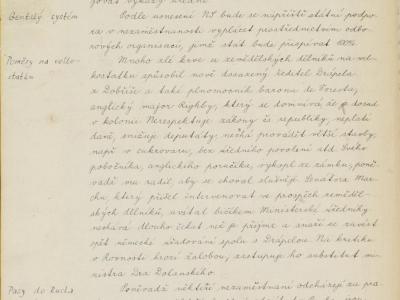 Gentský systém
Podle usnesení NS bude se napříště státní podpo-
ra v nezaměstnanosti vyplácet prostřednictvím odbo-
rových organisací, jimž stát bude přispívat 100%.
Poměry na velko-
statku
Mnoho zlé krve u zemědělských dělníků na vel-
kostatku způsobil nově dosazený ředitel Drápela
z Dobříše a také plnomocník barona de Foresta,
anglický major Righby, který se domnívá že je dosud
v kolonii. Nerespektuje zákony čs republiky, neplatí
daně, snižuje deputáty, nechá provádět větší stavby,
např. v cukrovaru, bez úředního povolení atd. Svého
pobočníka, anglického poručíka, vykopl ze zámku, poně-
vadž mu radil, aby se choval slušněji. Senátora Mar-
chu, který přišel intervenovat ve prospěch zeměděl-
ských dělníků, uvítal bičíkem. Ministerské úředníky
nechává dlouho čekat, než je přijme a snaží se zavést
zpět německé úřadování spolu s Drápelou. Na kritiku
v Rovnosti hrozí žalobou, zastupuje ho substitut mi-
nistra Dra Dolanského.
Pasy do Rucka
Poněvadž někteří nezaměstnaní odcházejí za pra-